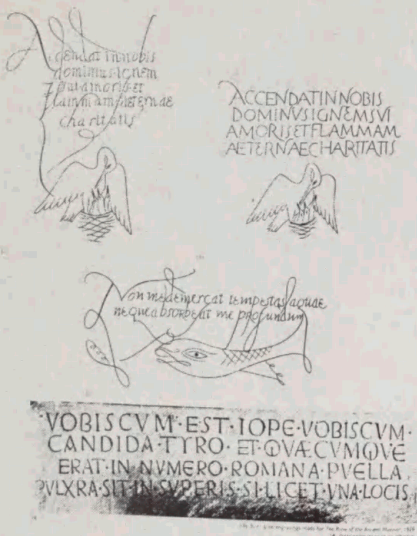 Accendat in nobis
dominus ignem
sui amoris et
flammam aeternae
charitatis
ACCENDAT IN NOBIS
DOMINVS IGNEM SVI
AMORIS ET FLAMMAM
AETERNAE CHARITATIS
Non me demergat tempestas aquae
neque absorbeat me profundum
VOBISCVM·EST·IOPE·VOBISCVM·
CANDIDA·TYRO· ET·QVÆCVMQVE
ERAT·IN·NVMERO·ROMANA·PVELLA,
PVLXRA·SIT·IN·SVPERIS·SI·LICET·VNA·LOCIS